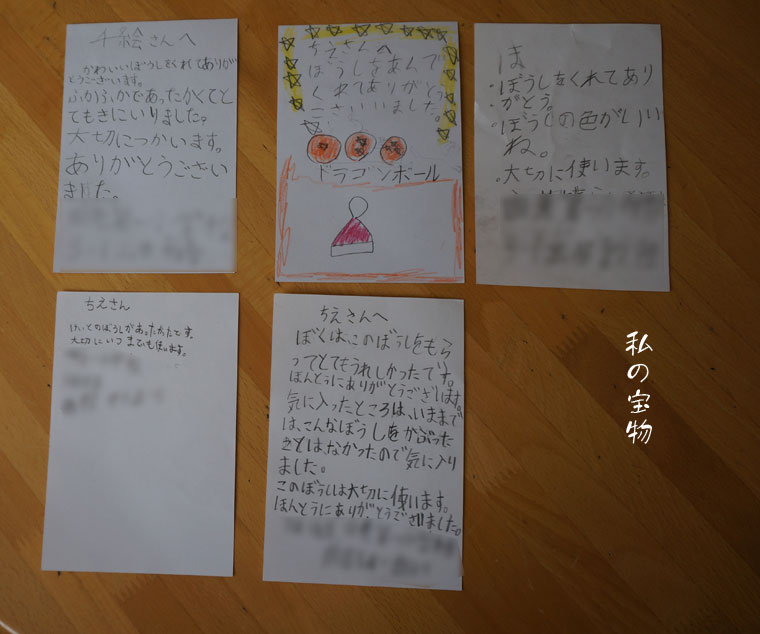 千絵さんへ
かわいいぼうしをくれてありが
とうございます。
ふかふかであったかくてと
てもきにいりました。
大切につかいます。
ありがとうござい
ました。
ちえさんへ
ぼうしをあんで
くれてありがとう
ございました。
ドラゴンボール
は
・ぼうしをくれてあり
がとう。
・ぼうしの色がいい
ね。
・大切に使います。
ちえさん
けいとのぼうしがあったかたです。
大切にいつまでも使います。
ちえさんへ
ぼくは、このぼうしをもら
ってとてもうれしかったです。
ほんとうにありがとうございます。
気に入ったところは、いままで
は、こんなぼうしをかぶった
ことはなかったので気に入り
ました。
このぼうしは大切に使います。
ほんとうにありがとうございました。
私の宝物